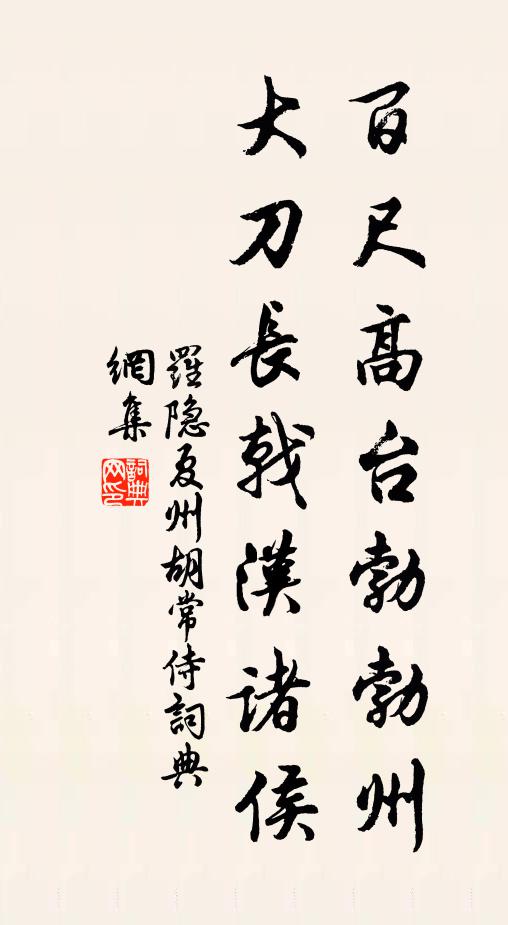 百尺高台勃勃州
大刀長戟漢諸侯
羅隐夏州胡常侍詞典
網集
詞典網印